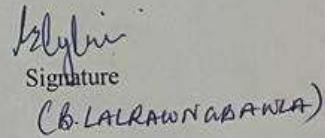 Signature
(B. LALRAWNGBAWLA)